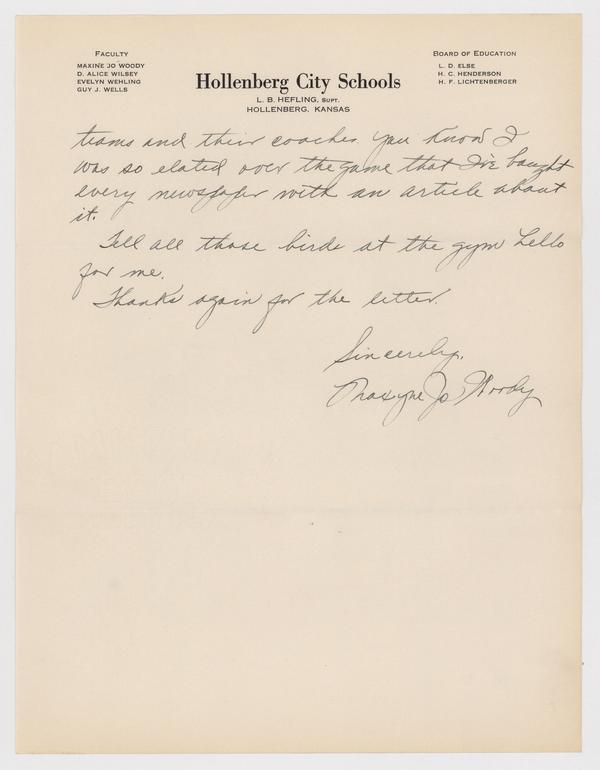 FACULTY
MAXINE JO WOODY
D. ALICE WILSEY
EVELYN WEHLING
GUY J. WELLS
Hollenberg City Schools
L. B. HEFLING, SUPT.
HOLLENBERG, KANSAS
BOARD OF EDUCATION
L. D. ELSE
H. C. HENDERSON
H. F. LICHTENBERGER
teams and their coaches. You know I
was so elated over the game that I've bought
every newspaper with an article about
it.
Tell all those birds at the gym hello
for me.
Thanks again for the letter.
Sincerely,
Maxyne Jo Woody